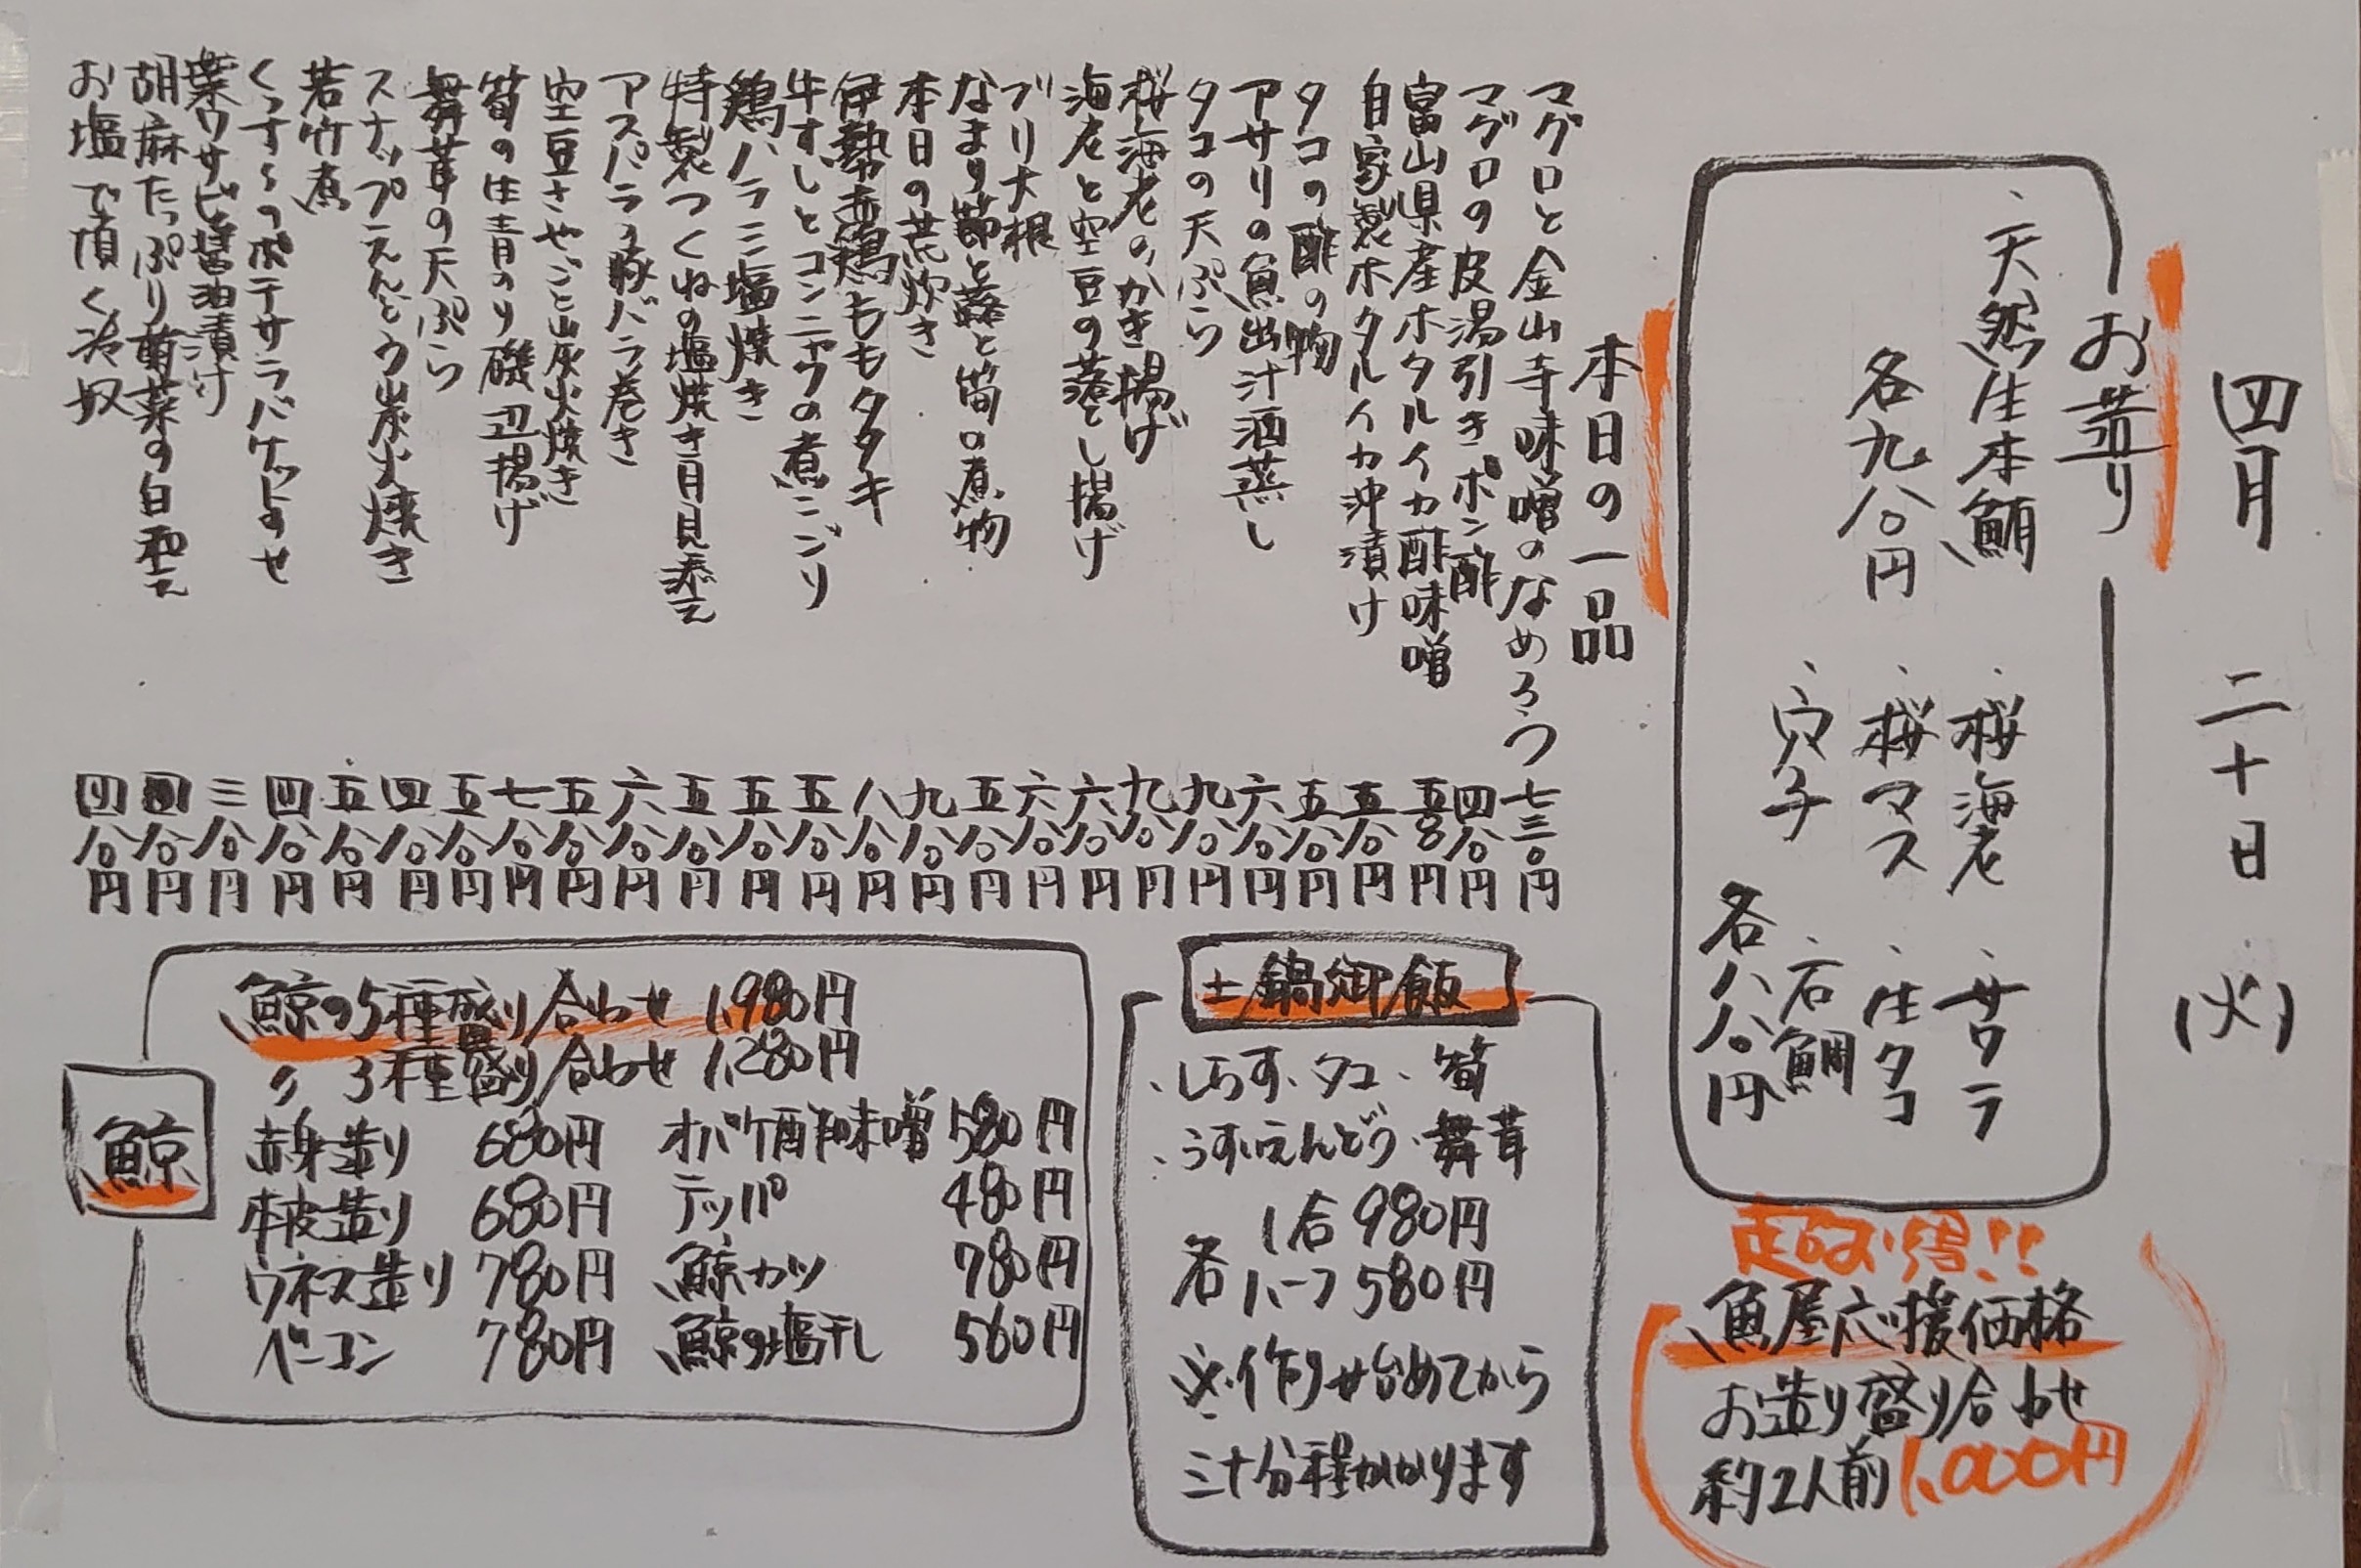 四月 二十日 (火)
お造り
・天然生本鮪
各九八〇円
・桜海老 ・サワラ
・桜マス ・生タコ
・穴子 ・石鯛
各八八〇円
超お得!!
魚屋応援価格
お造り盛り合わせ
約2人前 1,000円
本日の一品
マグロと金山寺味噌のなめろう 七三〇円
マグロの皮湯引きポン酢 四八〇円
富山県産ホタルイカ酢味噌 五八〇円
自家製ホタルイカ沖漬け 五八〇円
タコの酢の物 五八〇円
アサリの魚出汁酒蒸し 六八〇円
タコの天ぷら 九八〇円
桜海老のかき揚げ 九八〇円
海老と空豆の落とし揚げ 六八〇円
ブリ大根 六八〇円
なまり節と蕗と筍の煮物 五八〇円
本日の荒炊き 九八〇円
伊勢赤鶏ももタタキ 八八〇円
牛すじとコンニャクの煮こごり 五八〇円
鶏ハラミ塩焼き 五八〇円
特製つくねの塩焼き月見添え 五八〇円
アスパラの豚バラ巻き 六八〇円
空豆さやごと炭火焼き 五八〇円
筍の生青のり磯辺揚げ 七八〇円
舞茸の天ぷら 五八〇円
スナップえんどう炭火焼き 四八〇円
若竹煮 五八〇円
くずし々のポテサラバケットのせ 四八〇円
葉ワサビ醤油漬け 三八〇円
胡麻たっぷり菊菜の白和え 四八〇円
お塩で頂く冷奴 四八〇円
土鍋御飯
・しらす・タコ・筍
・うすいえんどう・舞茸
各 1合 980円
ハーフ 580円
※作り始めてから
三十分程かかります
鯨
鯨の5種盛り合わせ 1,980円
〃 3種盛り合わせ 1,280円
赤身造り 680円 オバケ酢味噌 580円
本皮造り 680円 テッパ 480円
ウネス造り 780円 鯨カツ 780円
ベーコン 780円 鯨の塩干し 560円